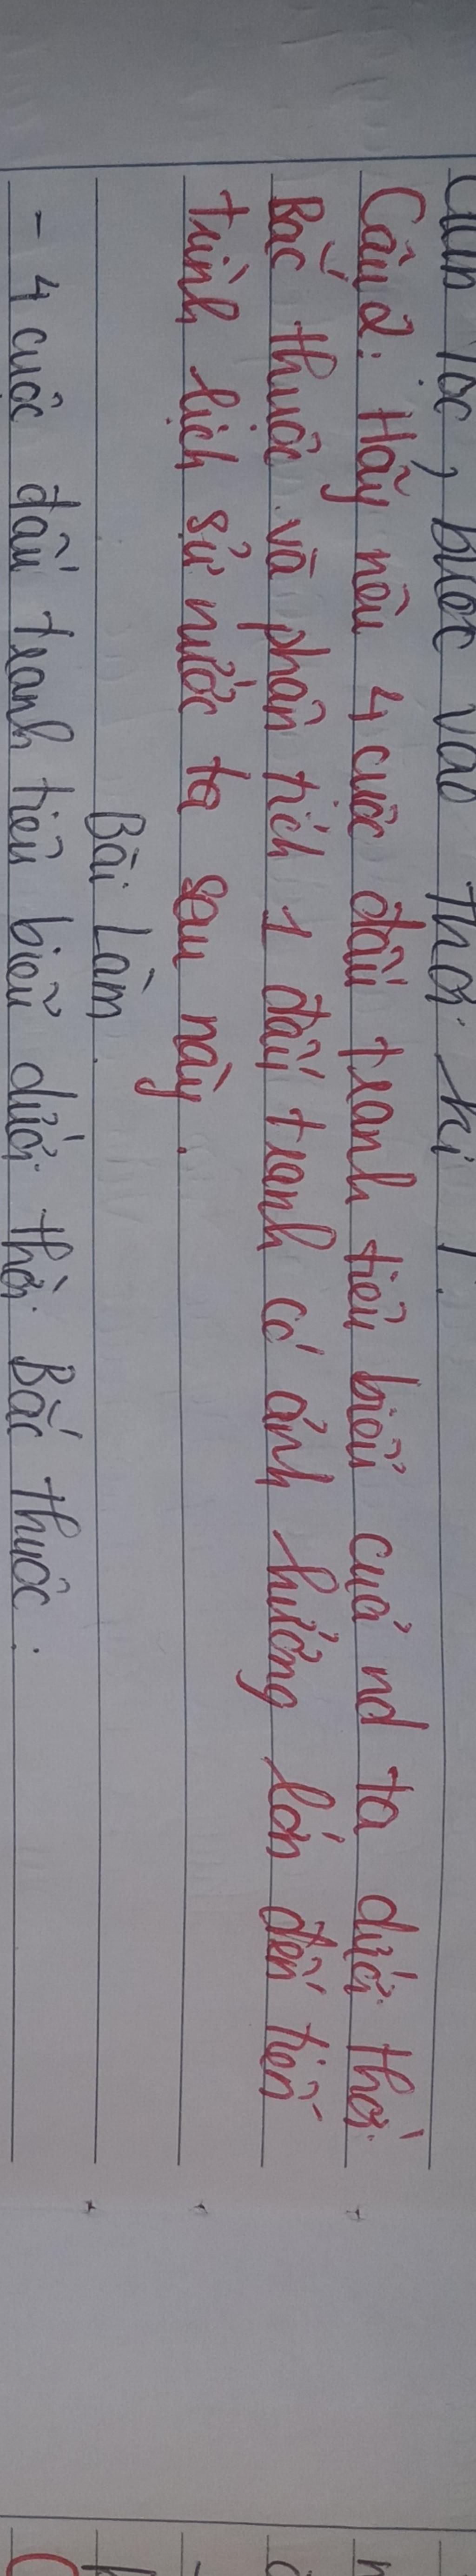 vào thời kì
Câu 2: Hãy nêu 4 cuộc đấu tranh tiêu biểu của nd ta dưới thời
Bắc thuộc và phân tích 1 đấu tranh có ảnh hưởng lớn đến tiến
trình lịch sử nước ta sau này.
Bài Làm.
- 4 cuộc đấu tranh tiêu biểu dưới thời Bắc thuộc: